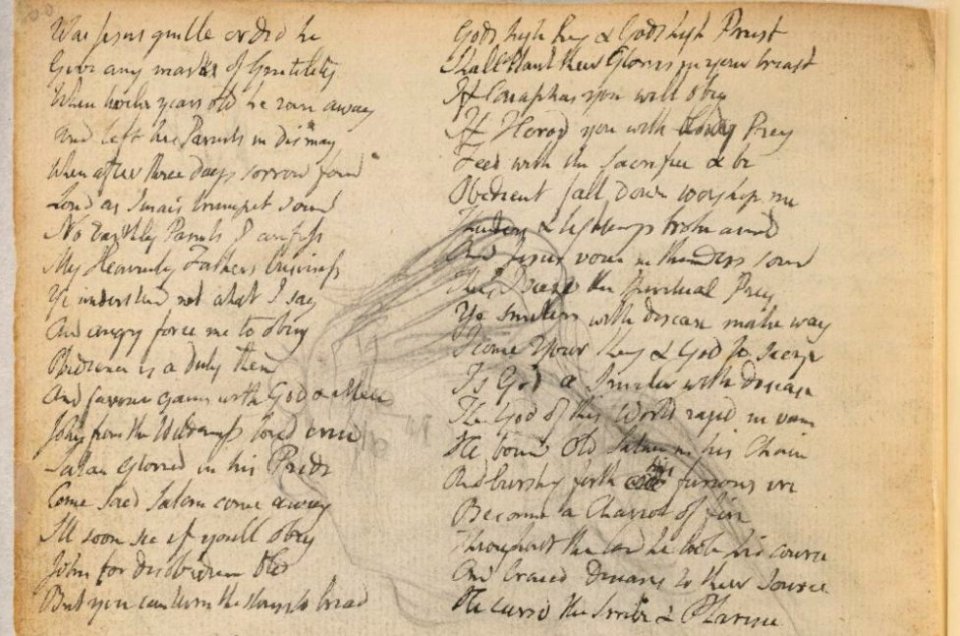 Was Jesus gentle or did he
Give any marks of Gentility
When twelve years old he ran away
And left his Parents in dismay
When after three days sorrow found
Loud as Sinais trumpet sound
No Earthly Parents I confess
My Heavenly Fathers business
Ye understand not what I say
And angry force me to obey
Obedience is a duty then
And favour gains with God & Men
John from the Wilderness loud cried
Satan gloried in his Pride
Come said Satan come away
Ill soon see if youll obey
John for disobedience bled
But you can turn the stones to bread
Gods high king & Gods high Priest
Shall Plant their Glories in your breast
If Caiaphas you will obey
If Herod you with bloody Prey
Feed with the Sacrifice & be
Obedient fall down worship me
Thunders & lightnings broke around
And Jesus voice in thunders sound
Thus I seize the Spiritual Prey
Ye smiters with disease make way
I come Your King & God to seize
Is God a Smiter with disease
The God of this World raged in vain
He bound Old Satan in his Chain
And bursting forth his furious ire
Became a Chariot of fire
Throughout the land he took his course
And traced Diseases to their Source
He cursd the Scribe & Pharisee